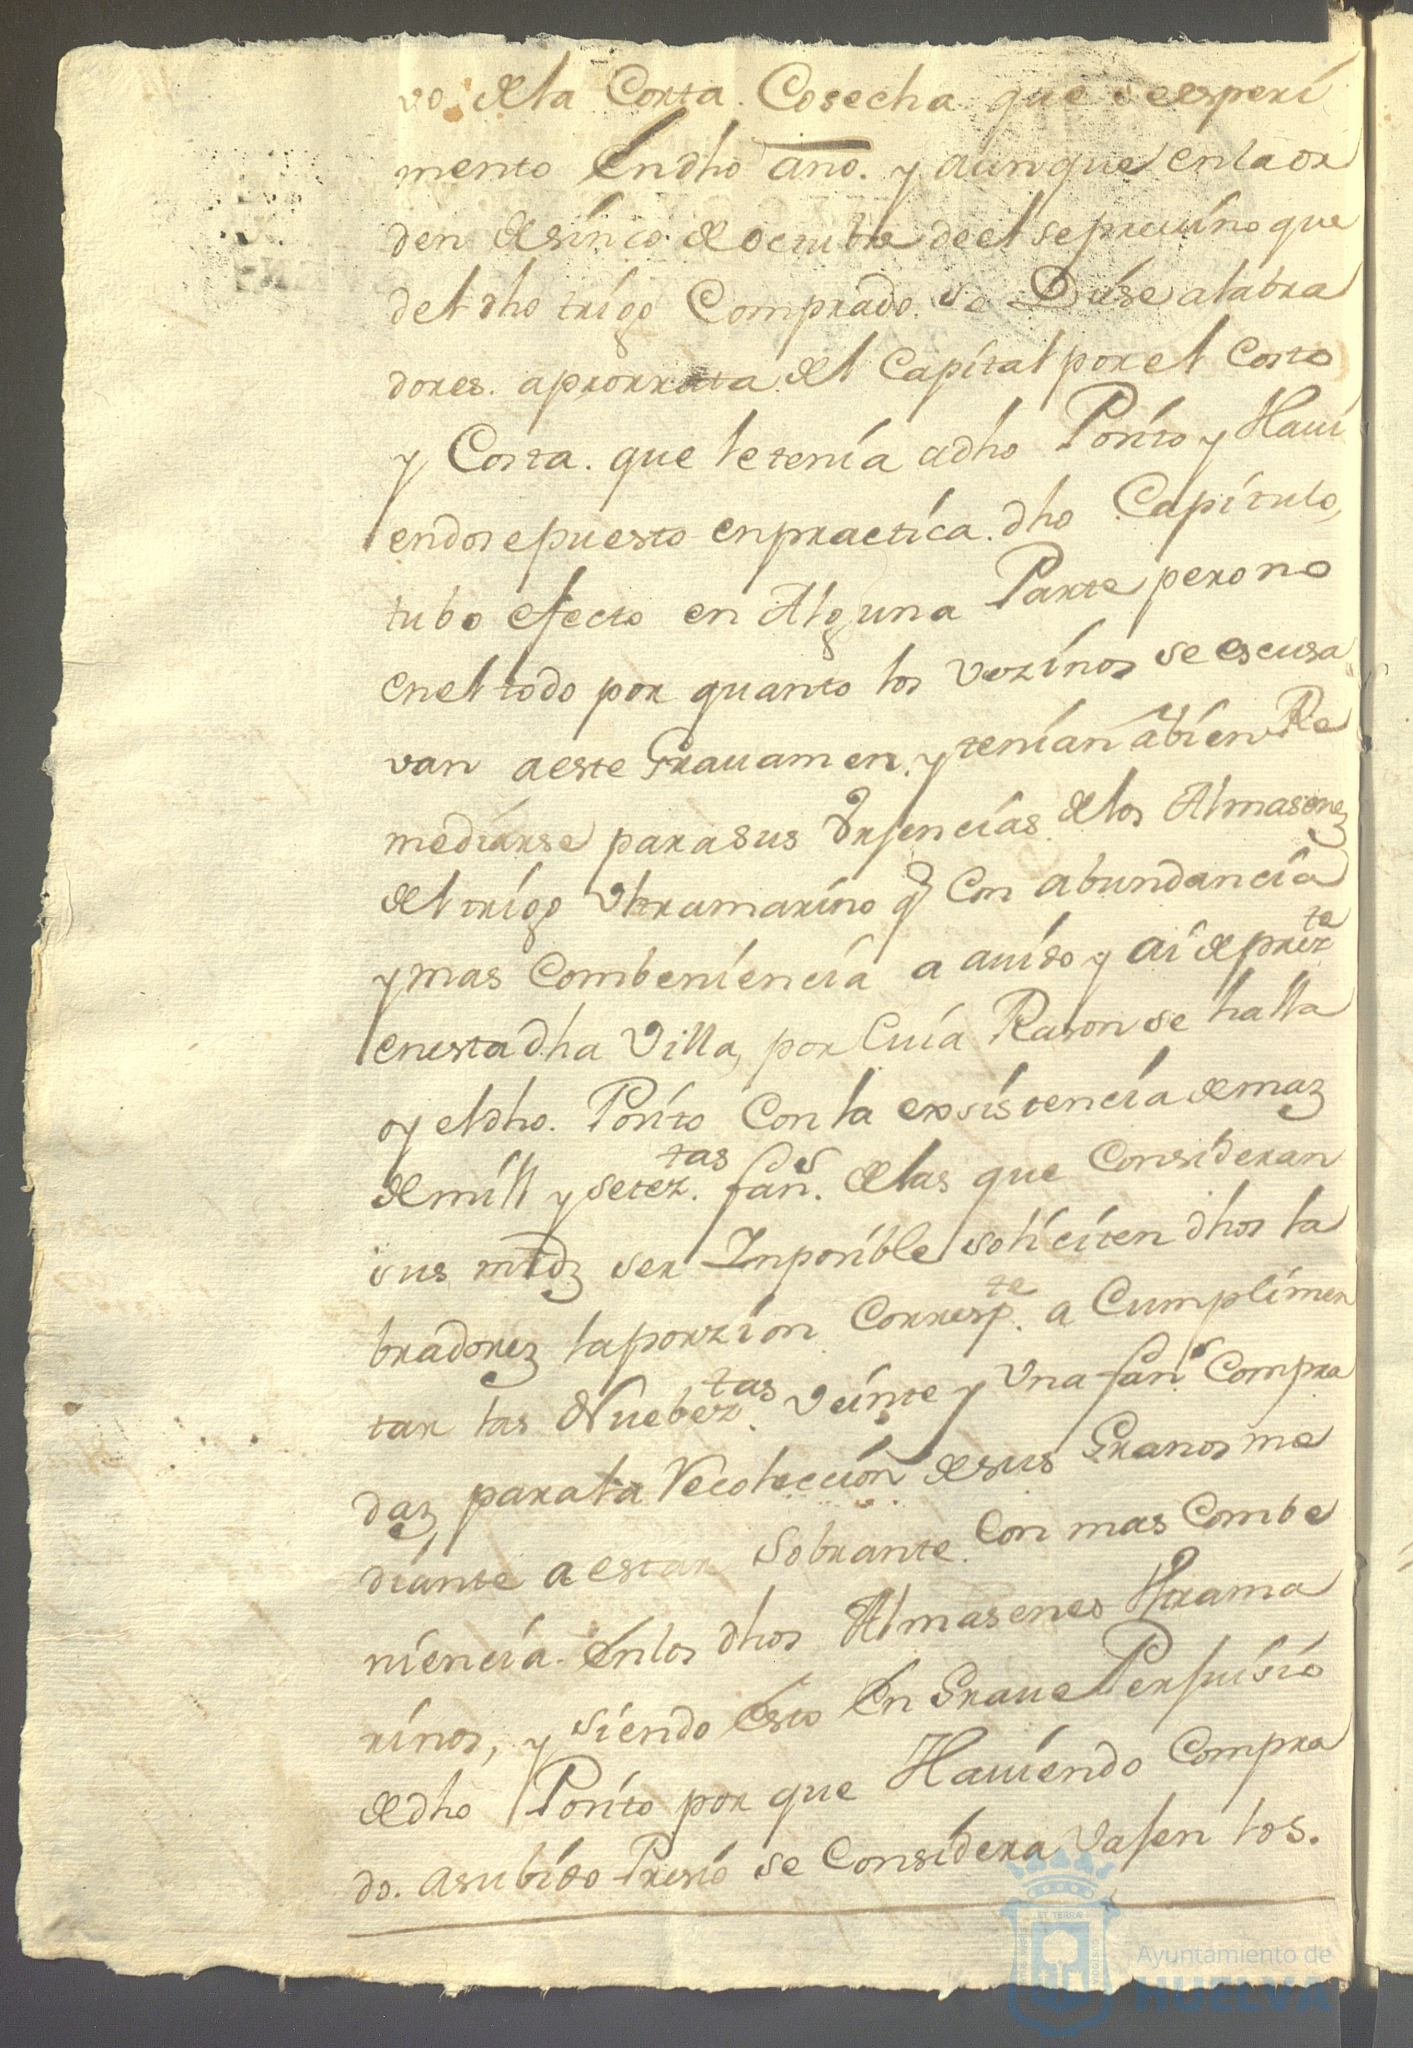 vo. de la Corta. Cosecha que se esperi
mento En dho año. y aunque en la or
den de sinco de octubre de el se previno que
del dho trigo Comprado. se Diese a labra
dores. a prorrata del Capital por el Costo
y Costa. que le tenia a dho Posito y Havi
endose puesto en practica. dho Capitulo,
tubo efecto en Alguna Parte pero no
en el todo por quanto los vezinos se escusa
van a este Gravamen, y tenian a bien Re
mediarse para sus Vrjencias de los Almasenez
del trigo Vltramarino q Con abundancia
y mas Combeniencia a avido y ai de prez.te
en esta dha Villa, por Cuia Rason se halla
oy el dho. Posito Con la exsistencia de maz
de mill y setez.tas fan.s de las que Consideran
sus mrdz ser Inposible soliciten dhos la
bradorez la porzion Corresp.te a Cumplimen
tar las Nuebez.tas Veinte y Vna fan.s Compra
daz, para la Recoleccion de sus Granos me
diante a estar sobrante. Con mas Combe
niencia. En los dhos Almasenes Vltrama
rinos, y siendo Esto En Grave Perjuisio
de dho Posito por que Haviendo Compra
do. a subido Presio se Considera Vajen los.
Ayuntamiento de
HUELVA